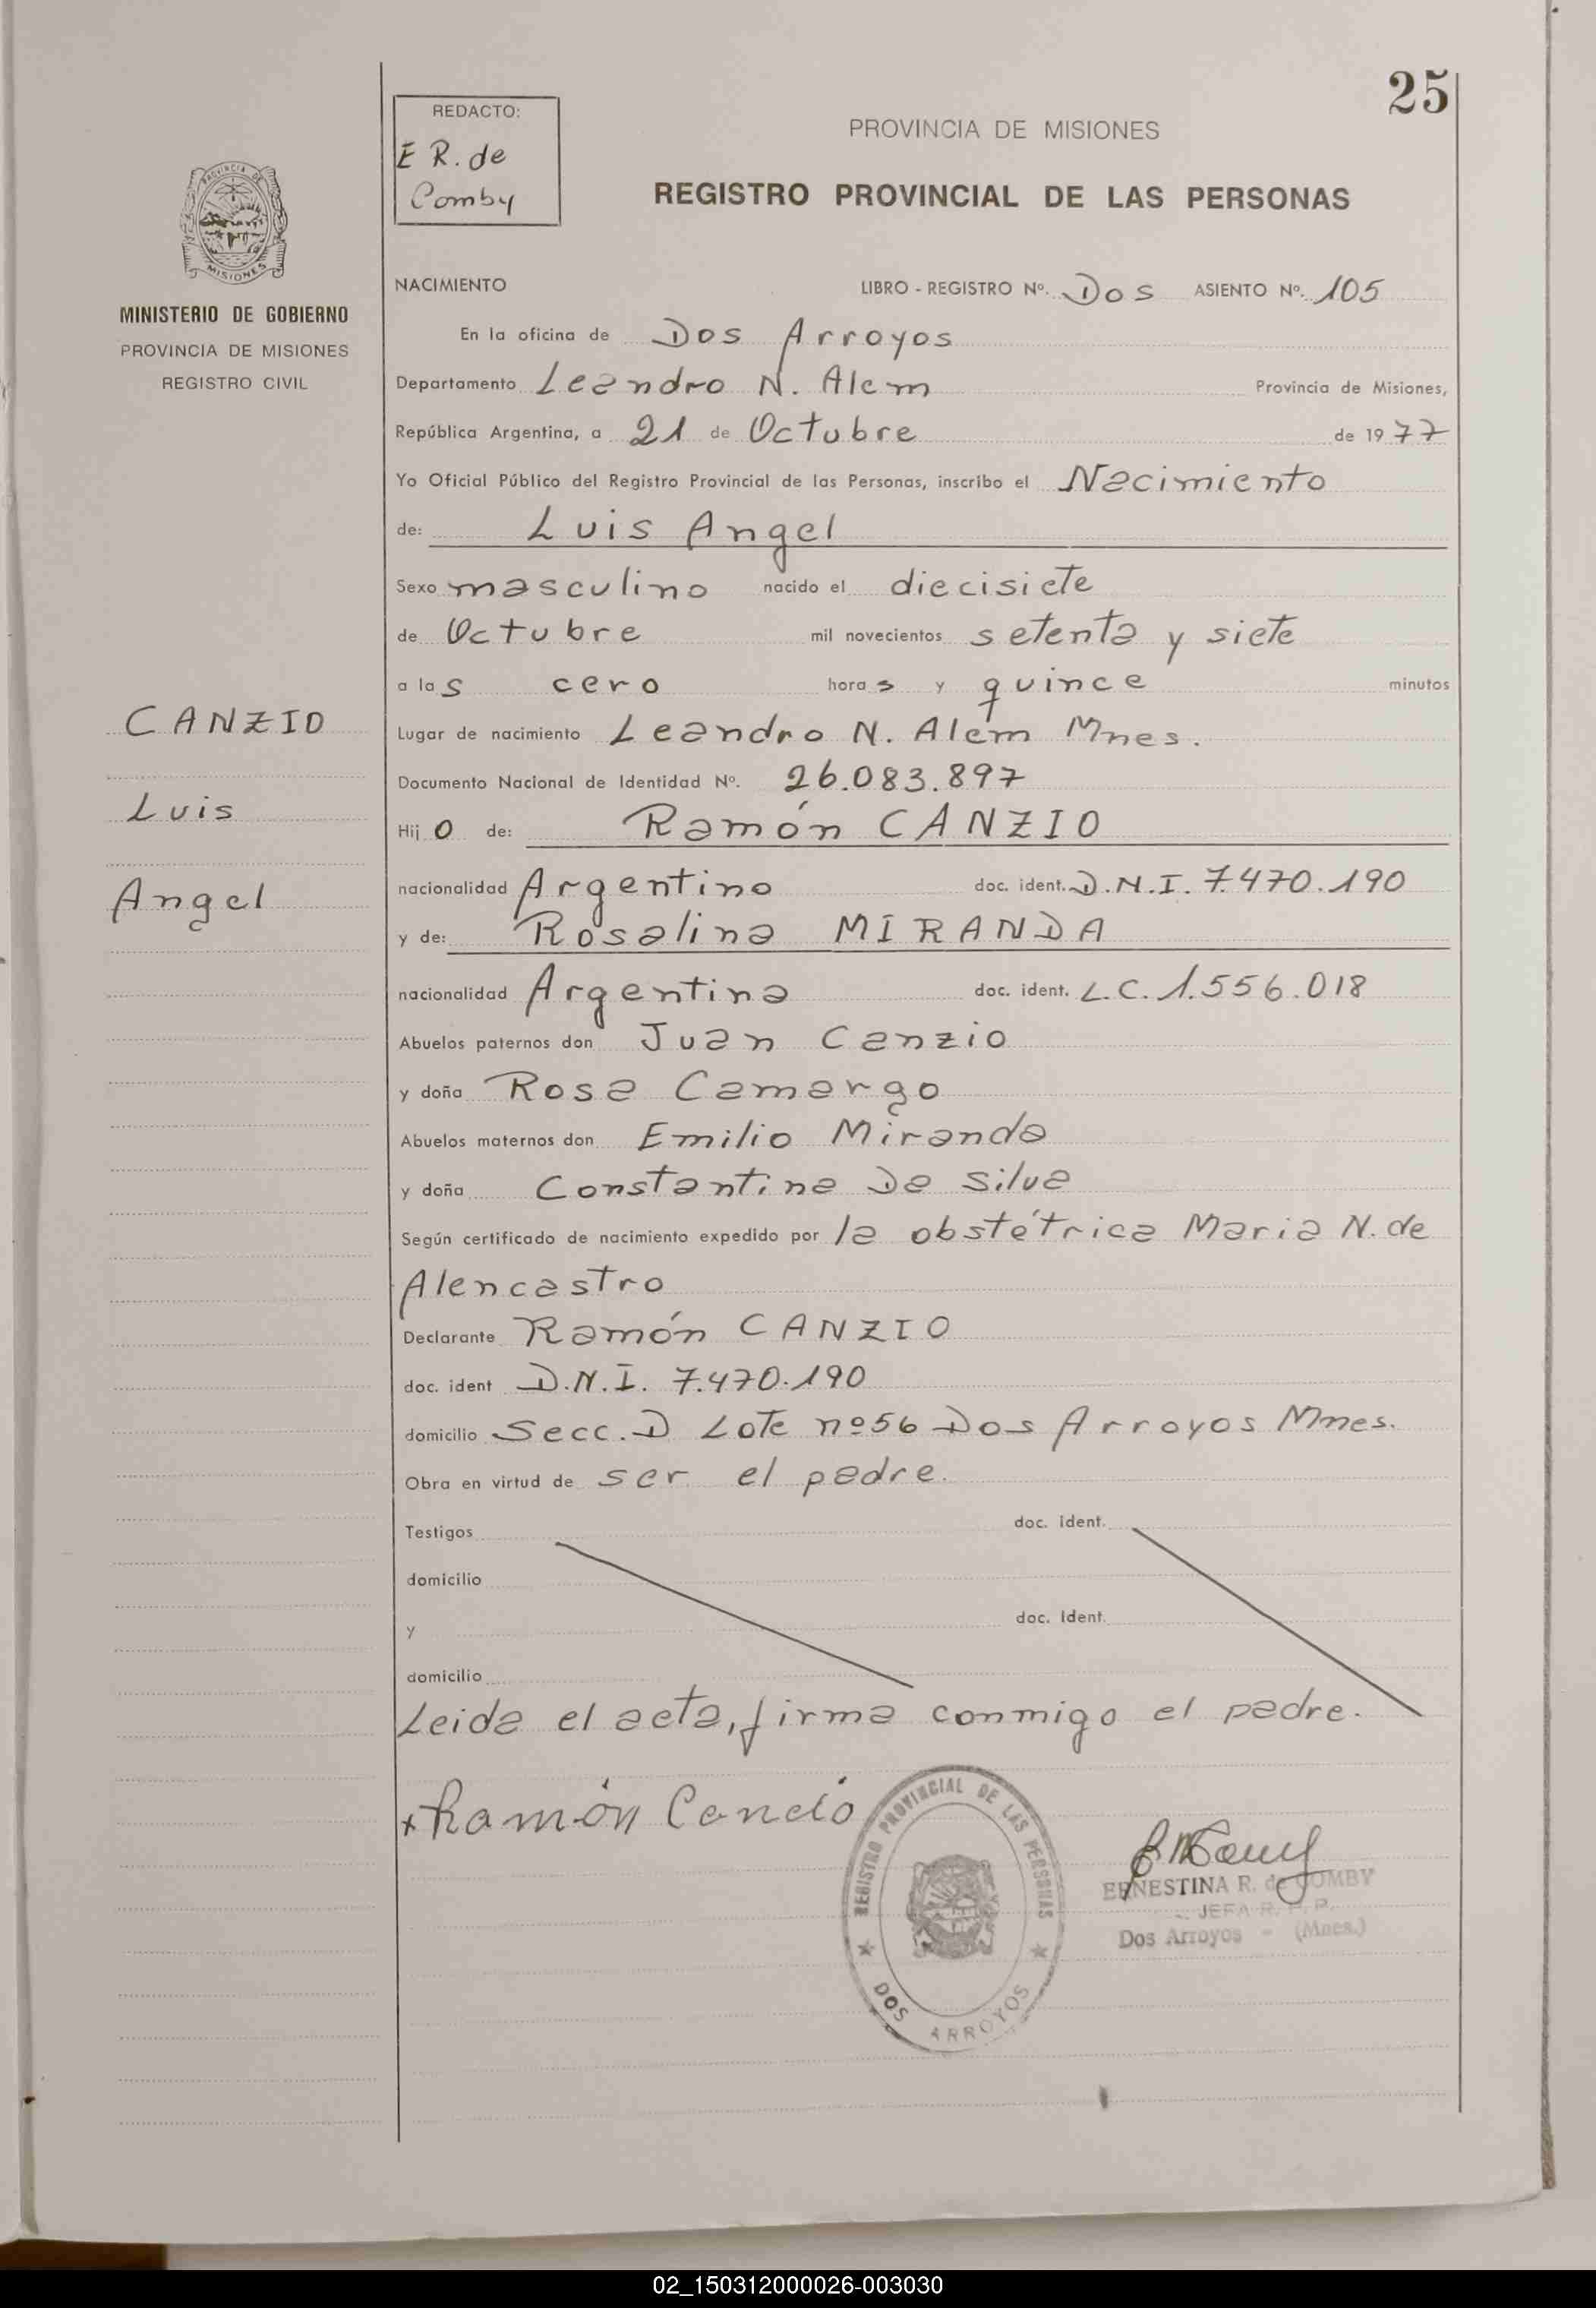 25
REDACTO:
E R. de
Comby
PROVINCIA DE MISIONES
REGISTRO PROVINCIAL DE LAS PERSONAS
PROVINCIA DE
MISIONES
MINISTERIO DE GOBIERNO
PROVINCIA DE MISIONES
REGISTRO CIVIL
NACIMIENTO LIBRO - REGISTRO Nº. Dos ASIENTO Nº. 105
En la oficina de Dos Arroyos
Departamento Leandro N. Alem Provincia de Misiones,
República Argentina, a 21 de Octubre de 1977
Yo Oficial Público del Registro Provincial de las Personas, inscribo el Nacimiento
de: Luis Angel
Sexo masculino nacido el diecisiete
de Octubre mil novecientos setenta y siete
a las cero horas y quince minutos
CANZIO
Luis
Angel
Lugar de nacimiento Leandro N. Alem Mnes.
Documento Nacional de Identidad Nº. 26.083.897
Hijo de: Ramón CANZIO
nacionalidad Argentino doc. ident. D.N.I. 7.470.190
y de: Rosalina MIRANDA
nacionalidad Argentina doc. ident. L.C. 1.556.018
Abuelos paternos don Juan Canzio
y doña Rosa Camargo
Abuelos maternos don Emilio Miranda
y doña Constantina Da Silva
Según certificado de nacimiento expedido por la obstétrica Maria N. de
Alencastro
Declarante Ramón CANZIO
doc. ident D.N.I. 7.470.190
domicilio Secc. D Lote nº 56 Dos Arroyos Mnes.
Obra en virtud de ser el padre.
Testigos doc. ident.
domicilio
y doc. ident.
domicilio
Leida el acta, firma conmigo el padre.
x Ramón Canclo
REGISTRO PROVINCIAL DE LAS PERSONAS
DOS ARROYOS
ERNESTINA R. de COMBY
JEFA R. P. P.
Dos Arroyos - (Mnes.)
02_150312000026-003030